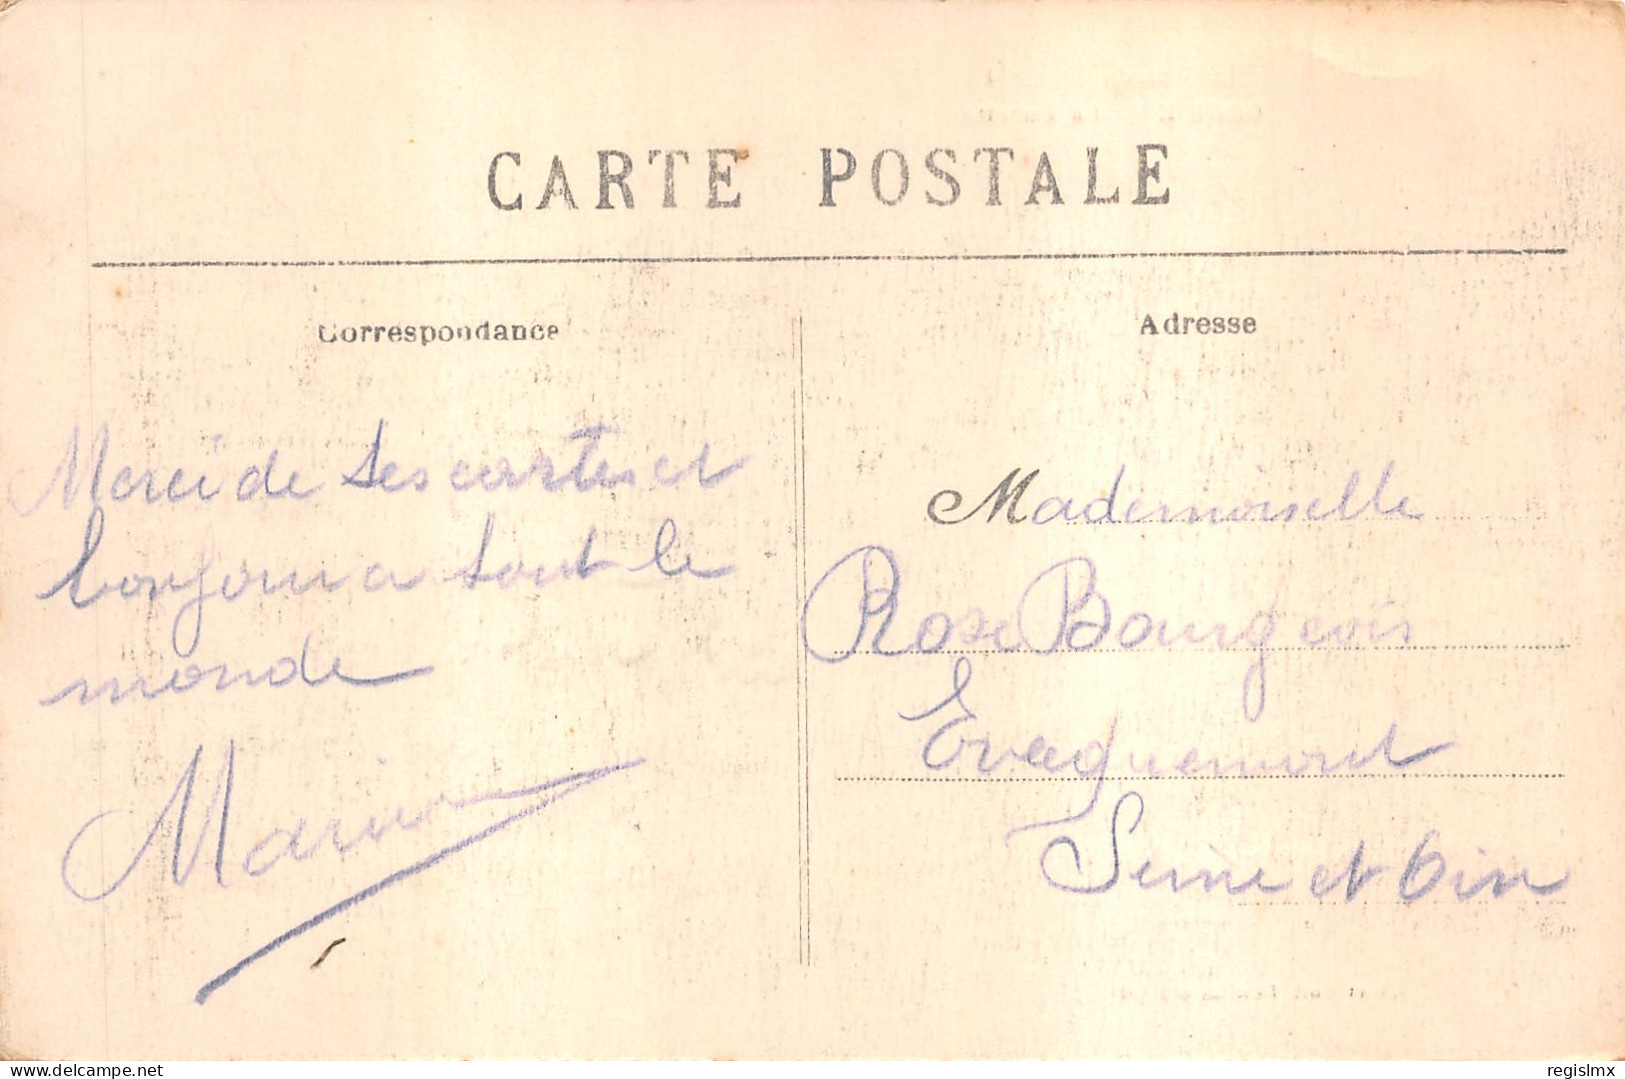 CARTE POSTALE
Correspondance
Adresse
Merci de tes cartes et
bonjour a tout le
monde
Marius
Mademoiselle
Rose Bourgeois
Evequemont
Seine et Oise
delcampe.net
regislmx